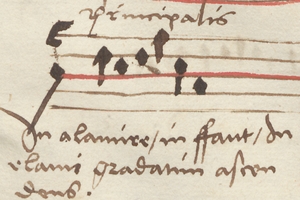 principalis
In alamire/ in ffaut/ In
elami gradatim ascen
dens.